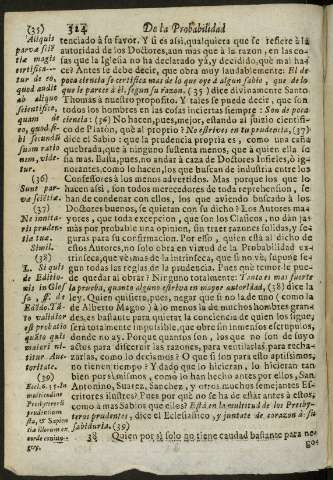 324 De la Probabilidad
tenciado à su favor. Y si es assi, quiquiera que se refiere à la
autoridad de los Doctores, aun mas que à la razon, en las cosas
que la Iglesia no ha declarado yà, y decidido, què mal haze?
Antes se debe decir, que obra muy laudablemente: El de
poca ciencia se certifica mas de lo que oye à algun sabio, que de lo
que le parece à èl, segun razon. (35) dice divinamente Santo
Thomàs à nuestro proposito. Y tales se puede decir, que son
todos los hombres en las cosas inciertas siempre: Son de poca
ciencia: (36) No hacen, pues, mejor, estando al juizio cientifico
de Platòn, què al proprio? No estrives en tu prudencia, (37)
dice el Sabio: que la prudencia propria es, como una caña
quebrada, que à ninguno sustenta menos, que à quien ella se
fia mas. Basta, pues, no andar à caza de Doctores Infieles, ò ignorantes,
como lo hacen, los que buscan de industria entre los
Confessores à los menos advertidos. Mas porque los que lo
hacen assi, son todos merecedores de toda reprehension, se
han de condenar con ellos, los que aviendo buscado à los
Doctores buenos, se quietan con su dicho? Los Autores mayores,
que todo excepcion, que son los Clasicos, no dàn jamàs
por probable una opinion, sin traer razones solidas, y seguras
para su confirmacion. Por esso, quien està al dicho de
estos Autores, no solo obra en virtud de la Probabilidad extrinseca,
que
todas las reglas de la prudencia. Pues què temor le puede
quedar al obrar? Ninguno totalmente: Tanto es mas fuerte
la prueba, quanto alguno estriva en mayor autoridad, (38) dice la
Ley. Quien quisiere, pues, negar que si no la de uno (como la
de Alberto Magno) à lo menos la de muchos hombres grandes,
es bastante para quietar la conciencia de quien los sigue,
serà totalmente impossible, que obre sin immensos escrupulos,
donde no ay. Porque quantos son, los que no son de suyo
actos para discernir las razones, para ventilarlas, para rechazarlas,
como lo decimos? O que si son para esto aptissimos,
no tienen tiempo? Y dado que lo hicieran, lo hicieran tan
bien por si mismos, como lo han hecho antes por ellos, San
Antonino, Suarez, Sanchez, y otros muchos semejantes Escritores
illustres? Pues por què no se ha de estàr antes à estos,
como à mas Sabios que ellos? Està en la multitud de los Presbyteros
prudentes, dice el Eclesiastico, y juntate de corazon à su
sabiduria. (39)
38 Quien por si solo no tiene caudal bastante para negoc
(35)
Aliquis
parvæ scientiæ
magis
certificatur
de eo,
quod audit
ab aliquo
scientifico,
quam de
eo, quod sibi
secundum
suam rationem,
videtur.
(36)
Sunt parvæ
scietiæ.
(37)
Ne innitaris
prudentiæ
tuæ.
(38)
L. Si quis
(39)
Eccl. 6. 35. In
multitudine
Presbyterorum
prudentium
sta, & Sapientiæ
illorum ex
corde coniungere.